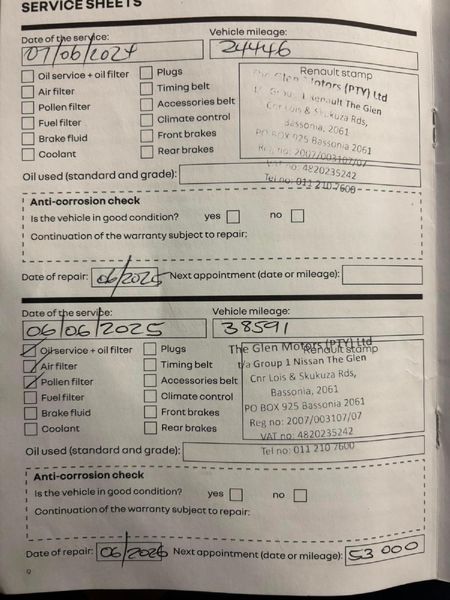 SERVICE SHEETS
Date of the service: Vehicle mileage:
07/06/2024 24446
Oil service + oil filter Plugs Renault stamp
Air filter Timing belt The Glen Motors (PTY) Ltd
Pollen filter Accessories belt t/a Group 1 Renault The Glen
Fuel filter Climate control Cnr Lois & Skukuza Rds,
Brake fluid Front brakes Bassonia, 2061
Coolant Rear brakes PO BOX 925 Bassonia 2061
Reg no: 2007/003107/07
VAT no: 4820235242
Oil used (standard and grade): Tel no: 011 210 7600
Anti-corrosion check
Is the vehicle in good condition? yes no
Continuation of the warranty subject to repair:
Date of repair: 06/2025 Next appointment (date or mileage):
Date of the service: Vehicle mileage:
06/06/2025 38591
Oil service + oil filter Plugs The Glen Motors (PTY) Ltd
Renault stamp
Air filter Timing belt t/a Group 1 Nissan The Glen
Pollen filter Accessories belt Cnr Lois & Skukuza Rds,
Fuel filter Climate control Bassonia, 2061
Brake fluid Front brakes PO BOX 925 Bassonia 2061
Coolant Rear brakes Reg no: 2007/003107/07
VAT no: 4820235242
Oil used (standard and grade): Tel no: 011 210 7600
Anti-corrosion check
Is the vehicle in good condition? yes no
Continuation of the warranty subject to repair:
Date of repair: 06/2026 Next appointment (date or mileage): 53 000